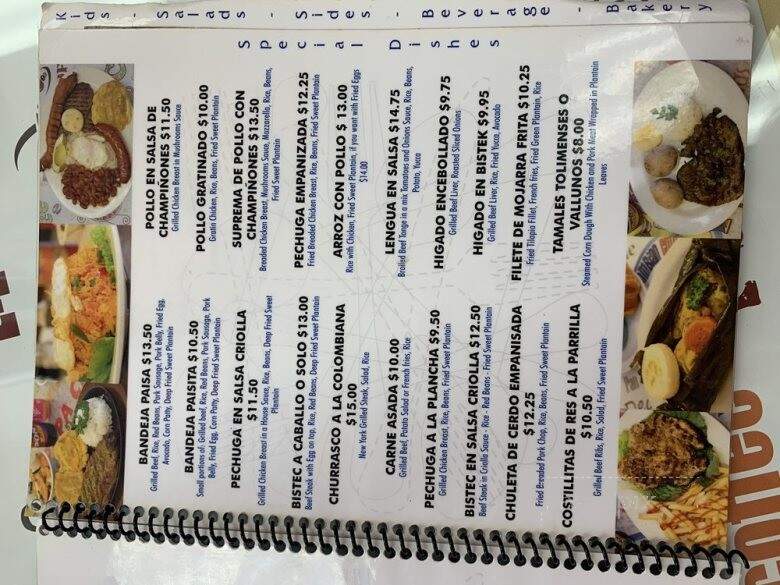 Kids - Salads - Beverage - Bakery
Special Dishes
BANDEJA PAISA $13.50
Grilled Beef, Rice, Red Beans, Pork Sausage, Pork Belly, Fried Egg,
Avocado, Corn Patty, Deep Fried Sweet Plantain
BANDEJA PAISITA $10.50
Small portions of: Grilled beef, Rice, Red Beans, Pork Sausage, Pork
Belly, Fried Egg, Corn Patty, Deep Fried Sweet Plantain
PECHUGA EN SALSA CRIOLLA
$11.50
Grilled Chicken Breast in a House Sauce, Rice, Beans, Deep Fried Sweet
Plantain
BISTEC A CABALLO O SOLO $13.00
Beef Steak with Egg on top, Rice, Red Beans, Deep Fried Sweet Plantain
CHURRASCO A LA COLOMBIANA
$15.00
New York Grilled Steak, Salad, Rice
CARNE ASADA $10.00
Grilled Beef, Potato Salad or French fries, Rice
PECHUGA A LA PLANCHA $9.50
Grilled Chicken Breast, Rice, Beans, Fried Sweet Plantain
BISTEC EN SALSA CRIOLLA $12.50
Beef Steak in Criolla Sauce - Rice - Red Beans - Fried Sweet Plantain
CHULETA DE CERDO EMPANISADA
$12.25
Fried Breaded Pork Chop, Rice, Beans, Fried Sweet Plantain
COSTILLITAS DE RES A LA PARRILLA
$10.50
Grilled Beef Ribs, Rice, Salad, Fried Sweet Plantain
POLLO EN SALSA DE
CHAMPIÑONES $11.50
Grilled Chicken Breast in Mushrooms Sauce
POLLO GRATINADO $10.00
Gratin Chicken, Rice, Beans, Fried Sweet Plantain
SUPREMA DE POLLO CON
CHAMPIÑONES $13.50
Breaded Chicken Breast, Mushrooms Sauce, Mozzarella, Rice, Beans,
Fried Sweet Plantain
PECHUGA EMPANIZADA $12.25
Fried Breaded Chicken Breast, Rice, Beans, Fried Sweet Plantain
ARROZ CON POLLO $ 13.00
Rice with Chicken, Fried Sweet Plantain, if you want with Fried Eggs
$14.00
LENGUA EN SALSA $14.75
Broiled Beef Tongue in a mix Tomatoes and Onions Sauce, Rice, Beans,
Potato, Yucca
HIGADO ENCEBOLLADO $9.75
Grilled Beef Liver, Roasted Sliced Onions
HIGADO EN BISTEK $9.95
Grilled Beef Liver, Rice, Fried Yucca, Avocado
FILETE DE MOJARRA FRITA $10.25
Fried Tilapia Fillet, French fries, Fried Green Plantain, Rice
TAMALES TOLIMENSES O
VALLUNOS $8.00
Steamed Corn Dough With Chicken and Pork Meat Wrapped in Plantain
Leaves